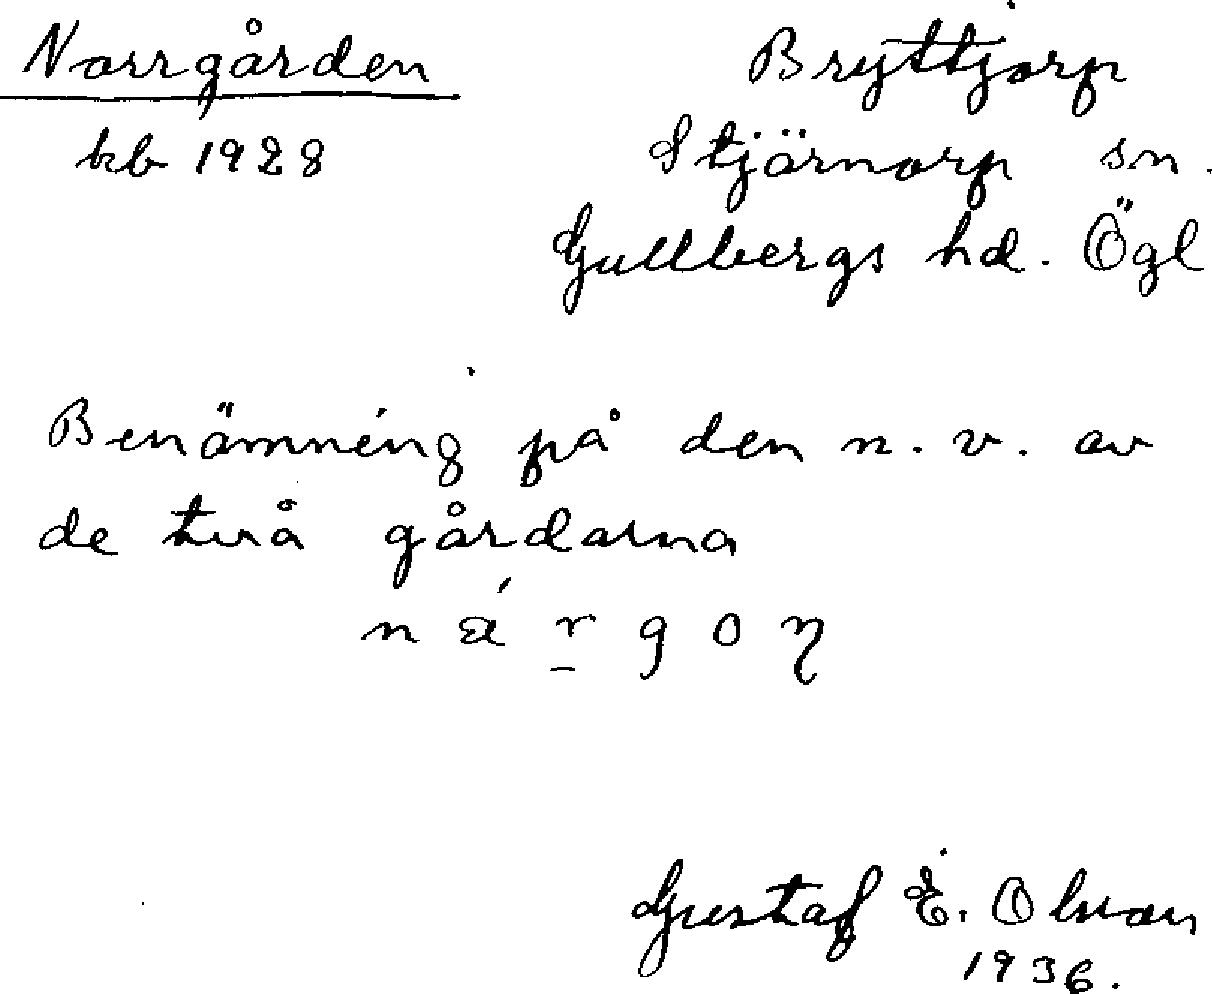 Norrgården
kb 1928
Bryttjorp
Stjärnorp sn.
Gullbergs hd. Ögl
Benämning på den n. v. av
de två gårdarna
Gustaf E. Olsson
1936.